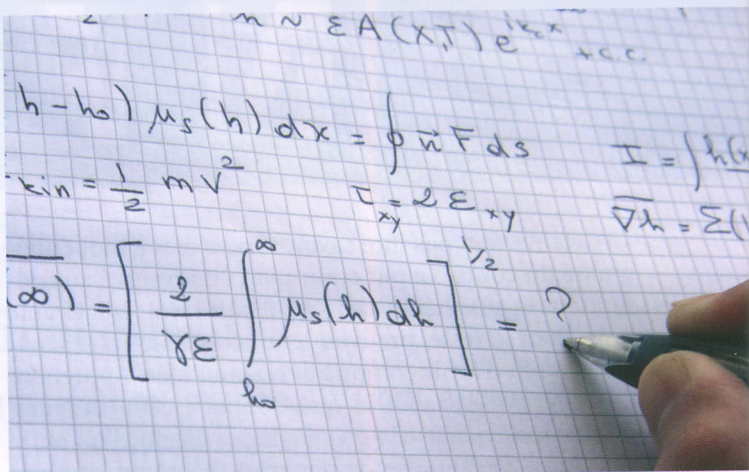 h ~ εA(X,T) e^{ik_c x} + c.c.
h - h₀) μₛ(h) dx = ∮ n⃗ F̅ ds
I = ∫ h(x
kin = 1/2 m v²
τ_xy = 2 ε_xy
∇h = Σ(
(∞) = [ 2/γε ∫_{h₀}^{∞} μₛ(h) dh ]^{1/2} = ?